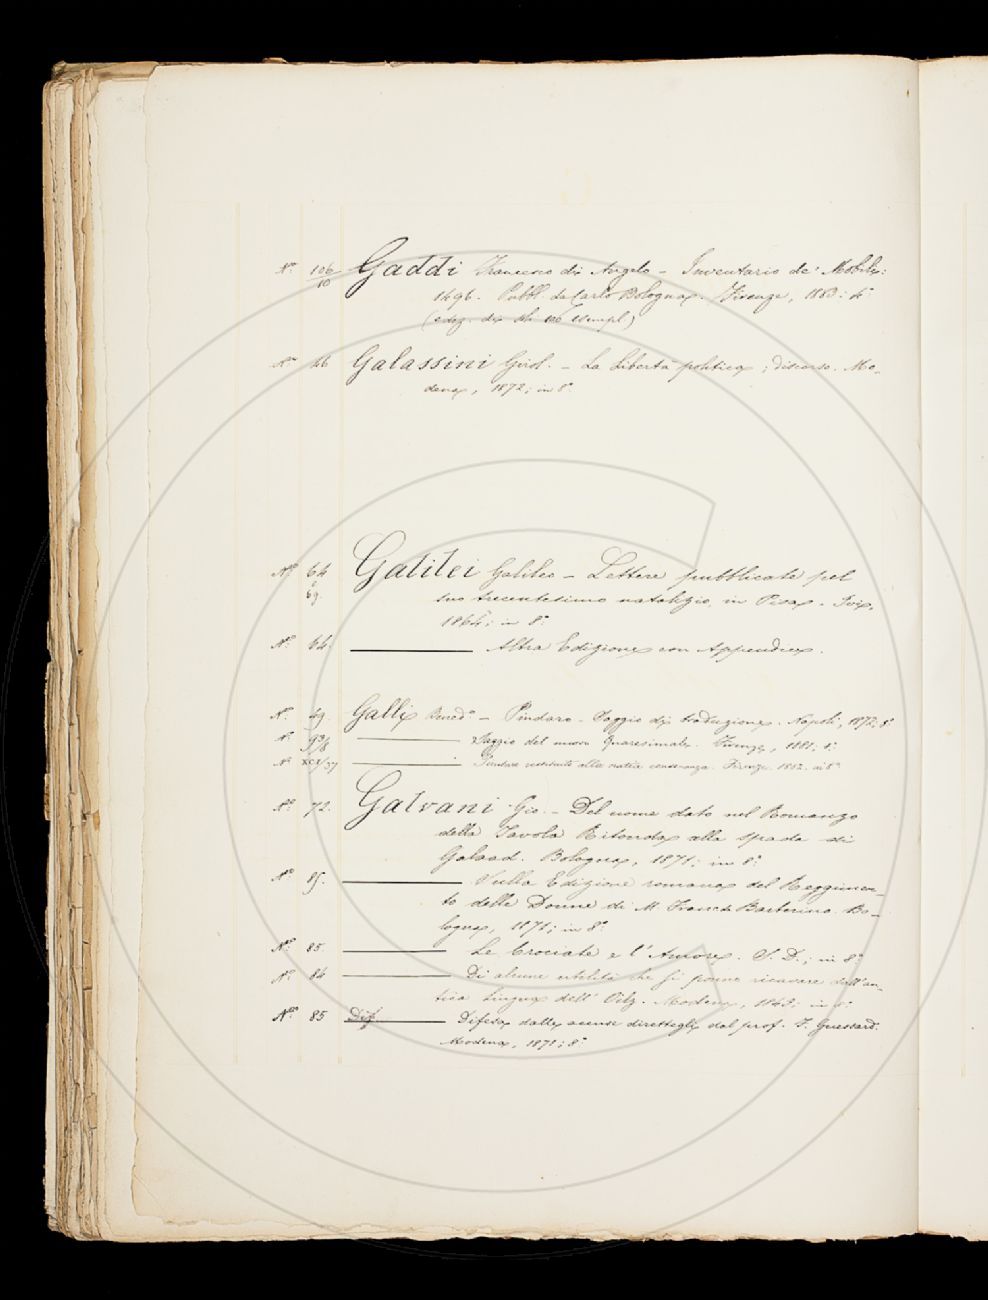 N.º 106/10 Gaddi Francesco di Angelo - Inventario de' Mobili:
1496. Pubbl. da Carlo Bologna. Firenze, 1883: 4º
(ediz. di 100 Esempl)
N.º 46 Galassini Girol. - La Libertà politica; discorso. Mo-
dena, 1872; in 8º
N.º 64 Galilei Galileo - Lettere pubblicate pel
e 69. suo trecentesimo natalizio, in Pisa. Ivi,
1864; in 8º
N.º 64. Altra Edizione con Appendice.
N.º 49. Galli Bened.º - Pindaro. Saggio di traduzione. Napoli, 1872; 8º
N.º 93/8 Saggio del nuovo Quaresimale. Firenze, 1881; 8º
N.º XCI/37 Pindaro restituito alla natia consonanza. Firenze 1882. in 8º
N.º 72. Galvani Gio. - Del nome dato nel Romanzo
della Tavola Ritonda alla spada di
Galaad. Bologna, 1871; in 8º
N.º 85. Sulla Edizione romana del Reggimen-
to delle Donne di M. Franc. da Barberino. Bo-
logna, 1871; in 8º
N.º 85 Le Crociate e l'Amore. S. D.; in 8º
N.º 84 Di alcune utilità che si ponno ricavare dall'an-
tica Lingua dell' Oil. Modena, 1843; in 8º
N.º 85 Dif Difesa dalle accuse direttegli dal prof. F. Guessard.
Modena, 1871; 8º